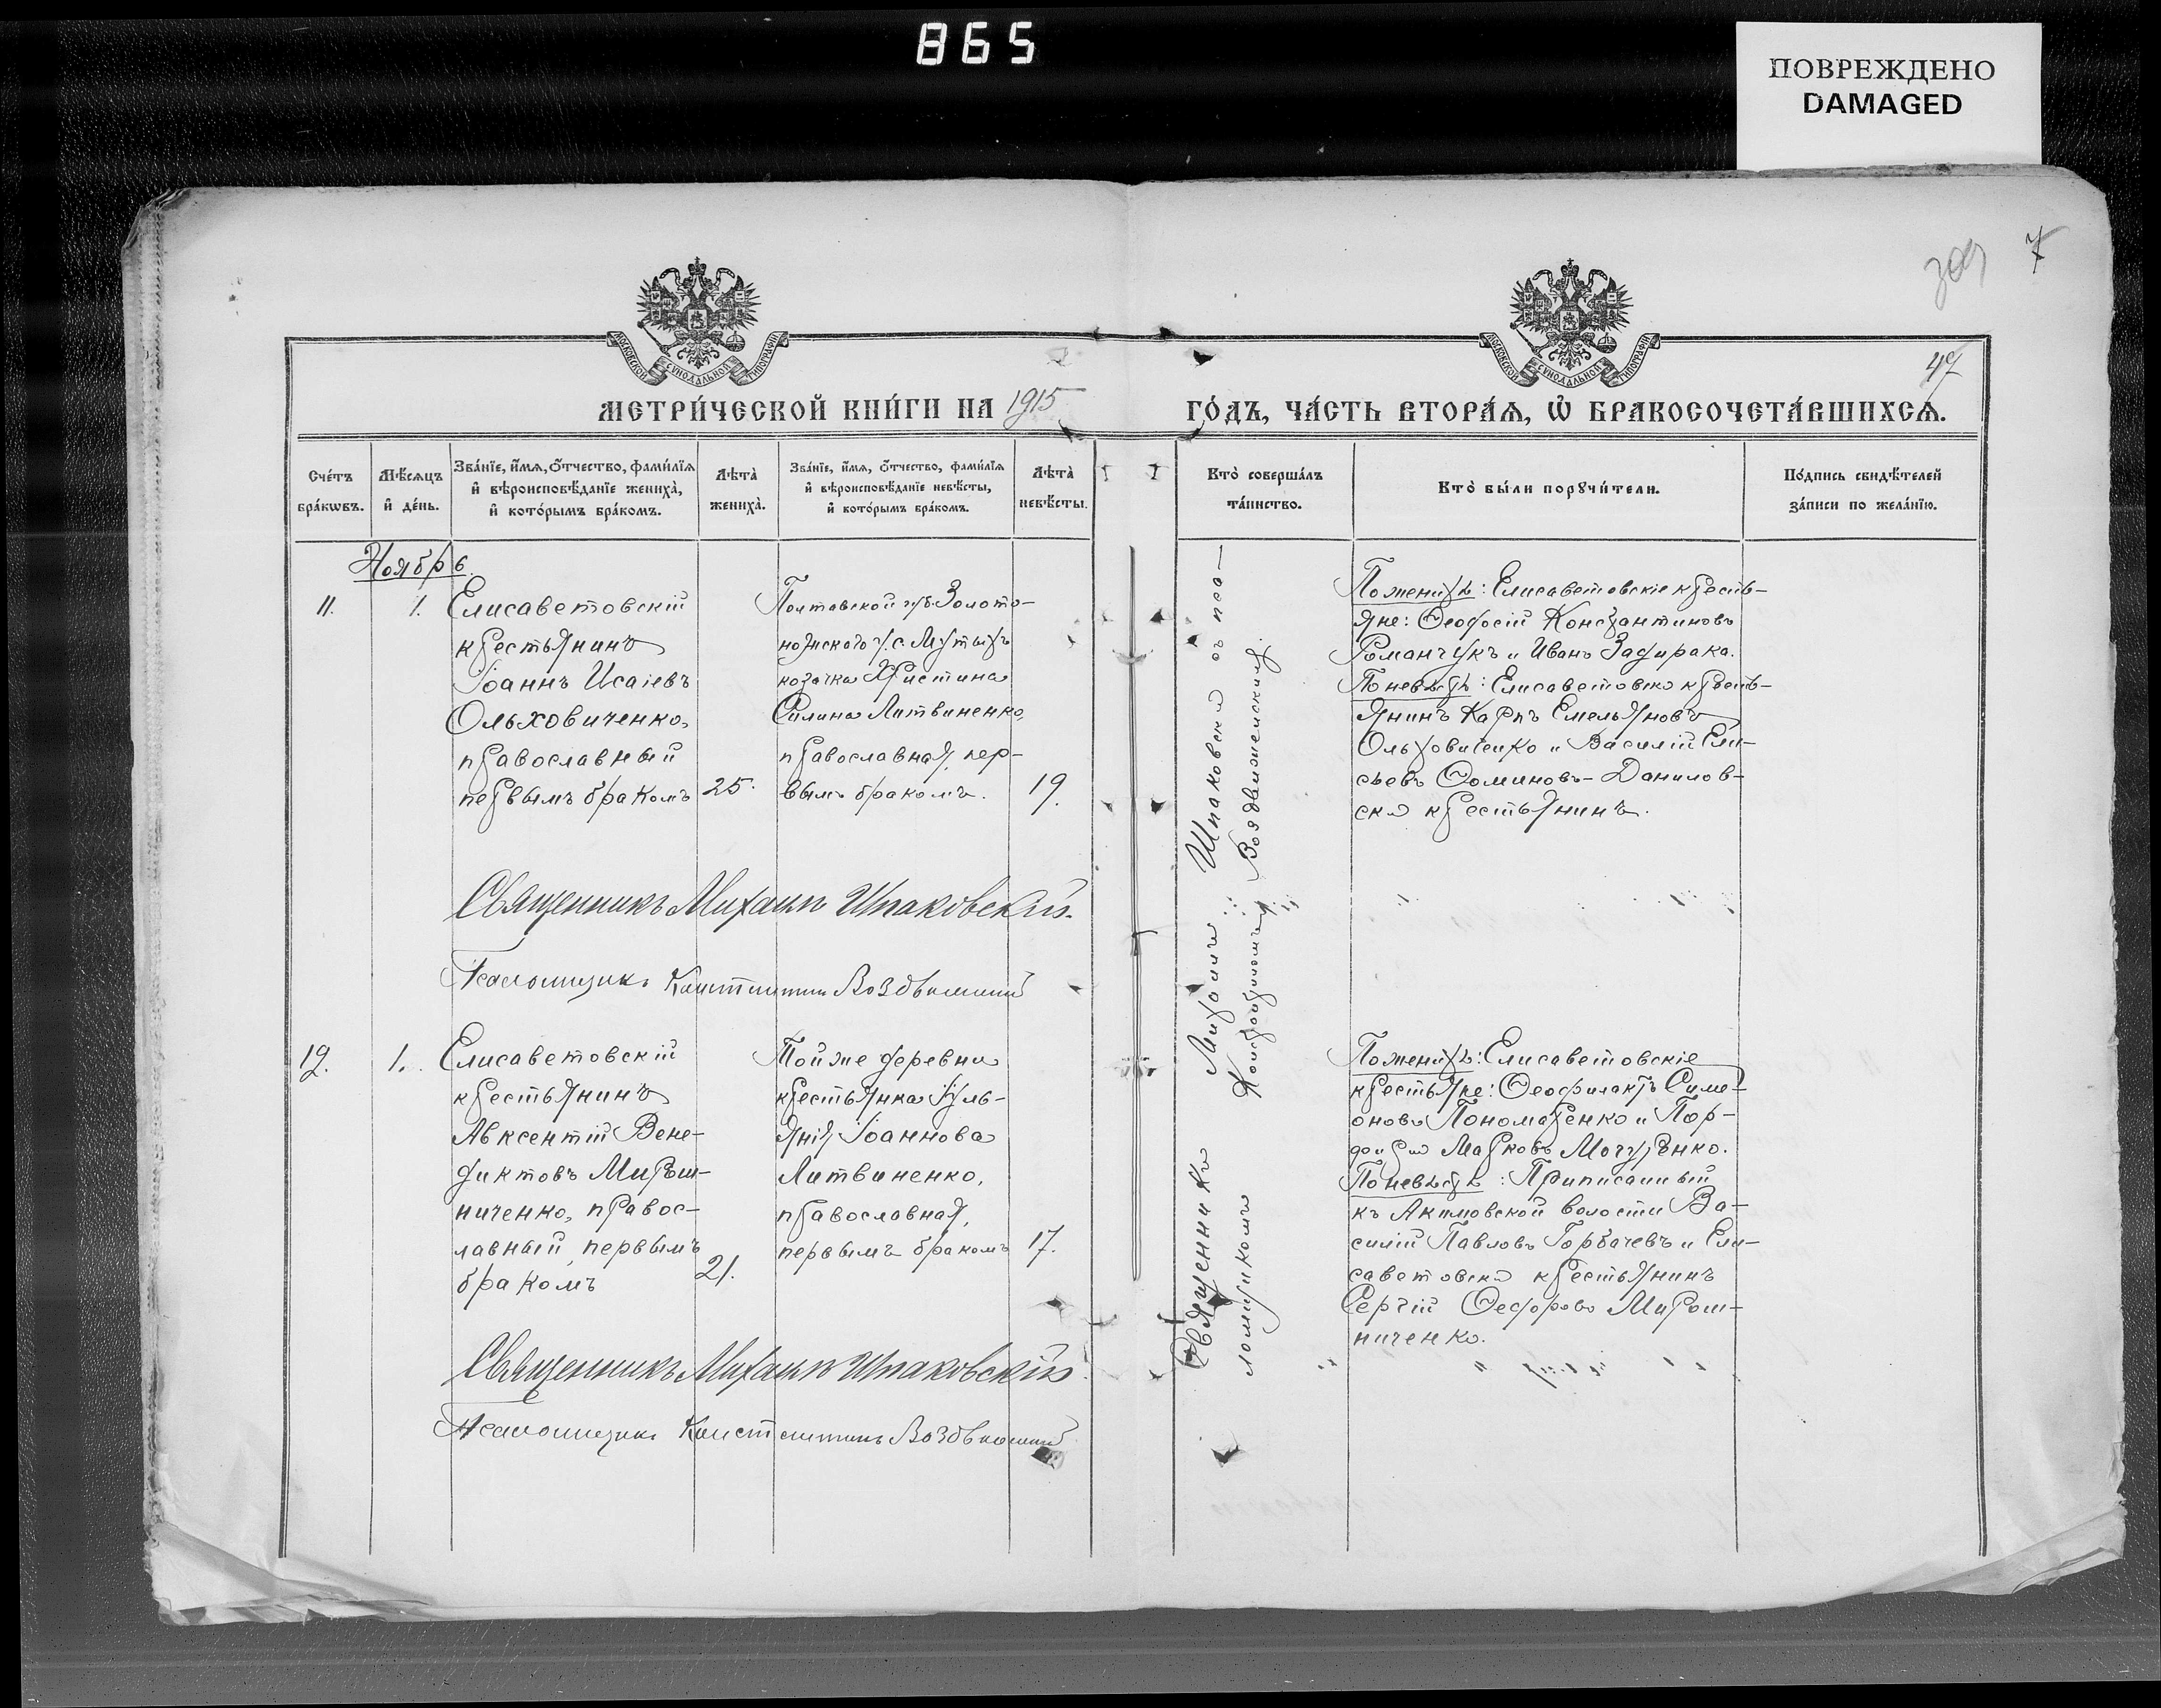 865
ПОВРЕЖДЕНО
DAMAGED
7
47
МОСКОВСКОЙ СѴНОДАЛЬНОЙ ТИПОГРАФІИ
МОСКОВСКОЙ СѴНОДАЛЬНОЙ ТИПОГРАФІИ
МЕТРИ́ЧЕСКОЙ КНИ́ГИ НА 1915 ГО́ДЪ, ЧА́СТЬ ВТОРА́Я, Ѡ БРАКОСОЧЕТА́ВШИХСЯ.
Сче́тъ бра́кѡвъ.
Мѣ́сяцъ и де́нь.
Зва́нїе, и́мя, о́тчество, фами́лїя и вѣроисповѣ́данїе жениха̀, и кото́рымъ бра́комъ.
Лѣта̀ жениха̀.
Зва́нїе, и́мя, о́тчество, фами́лїя и вѣроисповѣ́данїе невѣ́сты, и кото́рымъ бра́комъ.
Лѣта̀ невѣ́сты.
Кто̀ соверша́лъ та́инство.
Кто̀ бы́ли порꙋчи́тели.
По́дпись свидѣ́телей за́писи по жела́нїю.
Ноябрь
11.
1.
Елисаветовскій
крестьянинъ
Іоаннъ Исаіевъ
Ольховиченко,
православный
первымъ бракомъ
25.
Полтавской губ. Золото-
ножского у. с.
козачка Христина
Силина Литвиненко,
православная, пер-
вымъ бракомъ.
19.
Священникъ Михаилъ Шпаковскій съ пса-
ломщикомъ Воздвиженскимъ.
По женихѣ: Елисаветовскіе кресть-
яне: Ѳеодосій Константиновъ
Романчукъ и Иванъ Задирака.
По невѣстѣ: Елисаветовскій кресть-
янинъ Карпъ Емельяновъ
Ольховиченко и Василій Ели-
сѣевъ Ѳоминовъ - Данилов-
скій крестьянинъ.
Священникъ Михаилъ Шпаковскій.
Псаломщикъ Константинъ Воздвиженскій
12.
1.
Елисаветовскій
крестьянинъ
Авксентій Вене-
диктовъ Мирош-
ниченко, правос-
лавный, первымъ
бракомъ
21.
Той же деревни
крестьянка Іуль-
янія Іоаннова
Литвиненко,
православная,
первымъ бракомъ
17.
По женихѣ: Елисаветовскіе
крестьяне: Ѳеофилактъ Симе-
оновъ Пономаренко и Пор-
фирій Марковъ
По невѣстѣ: Приписанный
къ Акимовской волости Ва-
силій Павловъ Горбачевъ и Ели-
саветовскій крестьянинъ
Сергій Ѳеодоровъ Мирош-
ниченко.
Священникъ Михаилъ Шпаковскій
Псаломщикъ Константинъ Воздвиженскій